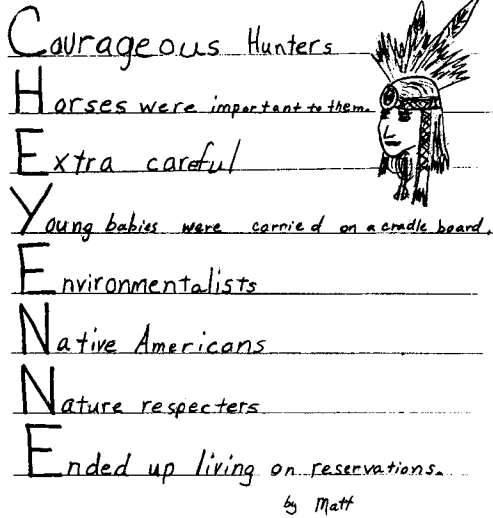 Courageous Hunters
Horses were important to them.
Extra careful
Young babies were carried on a cradle board.
Environmentalists
Native Americans
Nature respecters
Ended up living on reservations.
by Matt